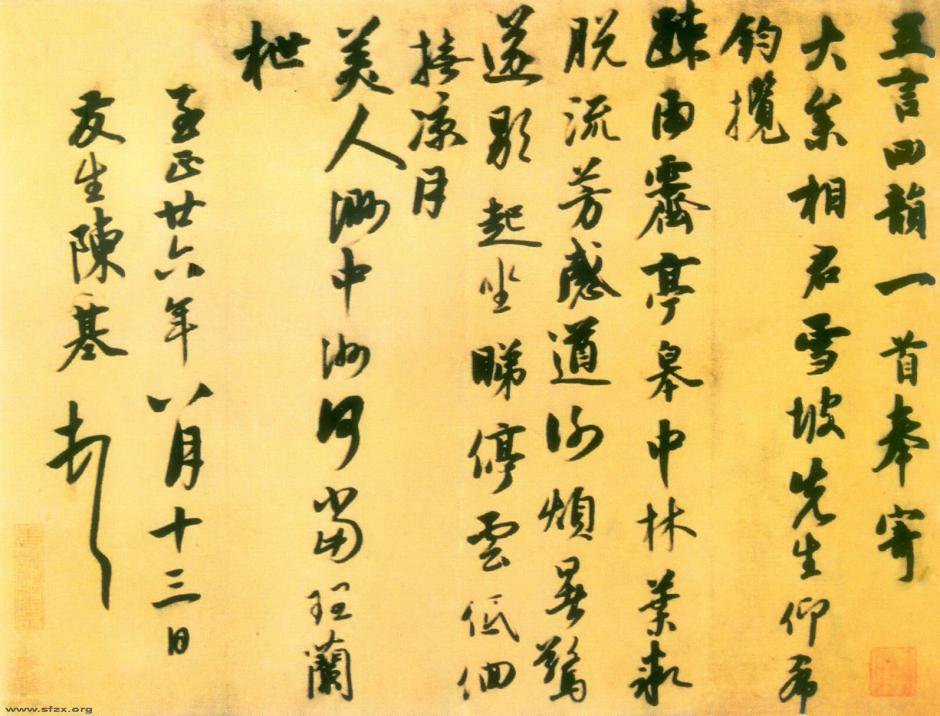 五言四韻一首奉寄
大參相君雪坡先生仰希
鈞攬
踈雨霽亭皋中林葉
脱流芳感遒 煩暑驚
遂 起坐睇停雲低徊
接凉月
美人湖中洲何當理蘭
枻
至正廿六年八月十三日
友生陳基
www.sfzx.org